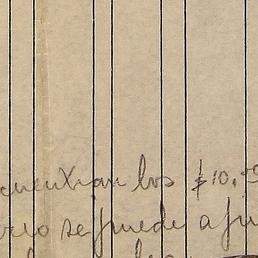 cuentran los $10.00
rio se puede aju